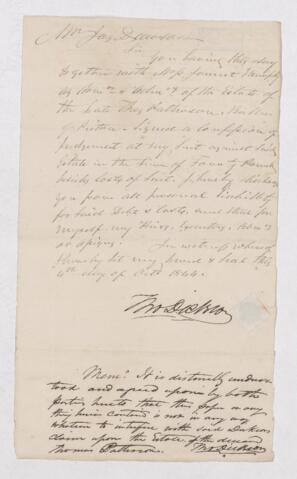 Mr Jas Dawson
Sir
You having this day
together with Mrs Jannet
as Admr & Admx of the Estate of
the late Thos Patterson
of Pictou signed a Confession of
Judgement at my Suit against said
Estate in the Sum of
besides Costs of Suit I hereby discharge
you from all personal liability
for said Debt & Costs and that for
myself my Heirs, Executors, Admrs
or Assigns. In witness whereof
I hereby set my hand & Seal this
4th day of Octr 1844.
Tho Dickson
Memo. It is distinctly unders
tood and agreed upon by both
parties hereto that this paper or any
thing herein contained is not in any way
whatever to interfere with said Dicksons
claim upon the Estate of the deceased
Thomas Patterson. Tho Dickson